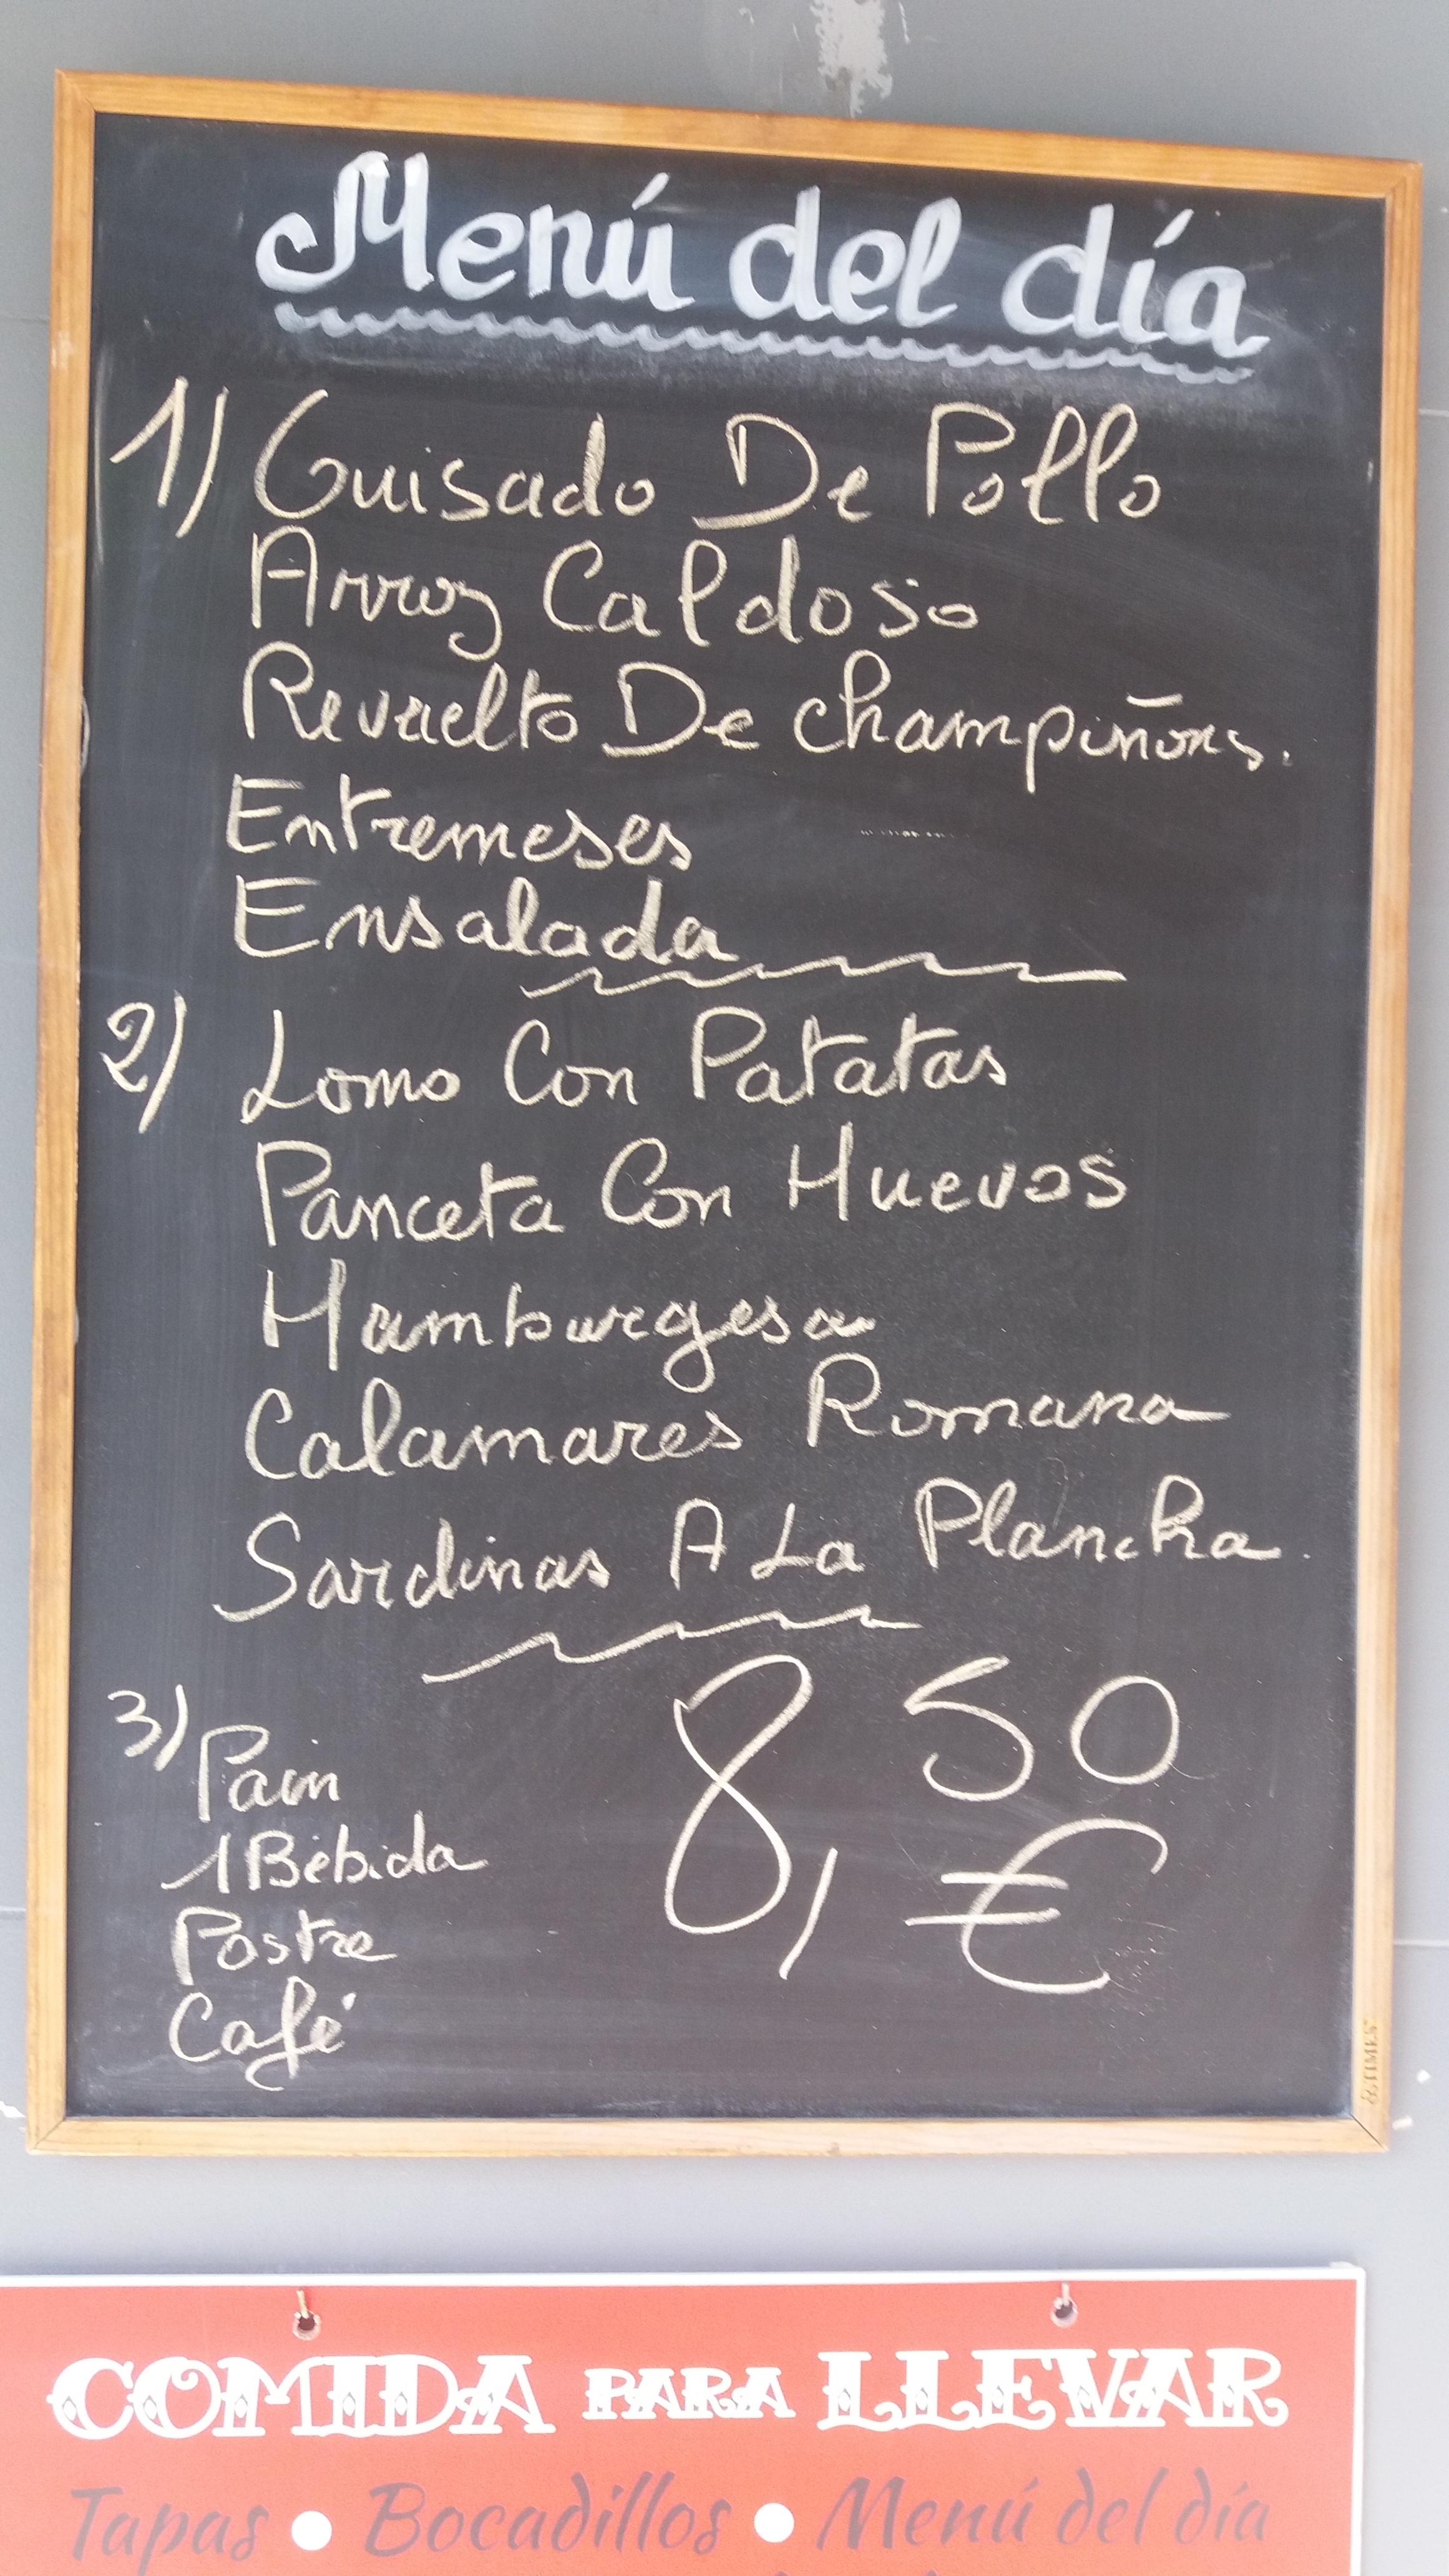 Menú del día
1) Guisado De Pollo
Arroz Caldoso
Revuelto De champiñones.
Entremeses
Ensalada
2) Lomo Con Patatas
Panceta Con Huevos
Hamburgesa
Calamares Romana
Sardinas A La Plancha.
3) Pain
1 Bébida
Postre
Café
8,50 €
COMIDA PARA LLEVAR
Tapas • Bocadillos • Menú del día